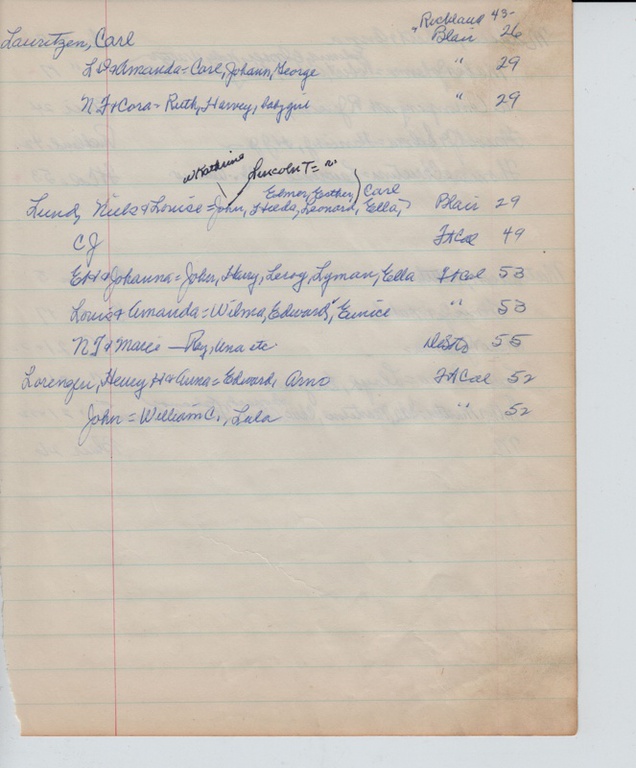 "Richland 43-
Lauritzen, Carl Blair 26
L P & Amanda = Carl, Johann, George " 29
N.F & Cora = Ruth, Harvey, baby girl " 29
w Katherine Lincoln T =
Elmer, Esther, Carl
Lund, Niels & Louise = John, Hilda, Leonard, Ella, Blair 29
CJ Ft Cal 49
EH & Johanna = John, Harry, Leroy, Lyman, Ella Ft Cal 53
Louis & Amanda = Wilma, Edward, Eunice " 53
N J & Marie — Ray, Una etc. DeSoto 55
Lorenzen, Henry H & Anna = Edward, Arno Ft Cal 52
John = William C., Lula " 52